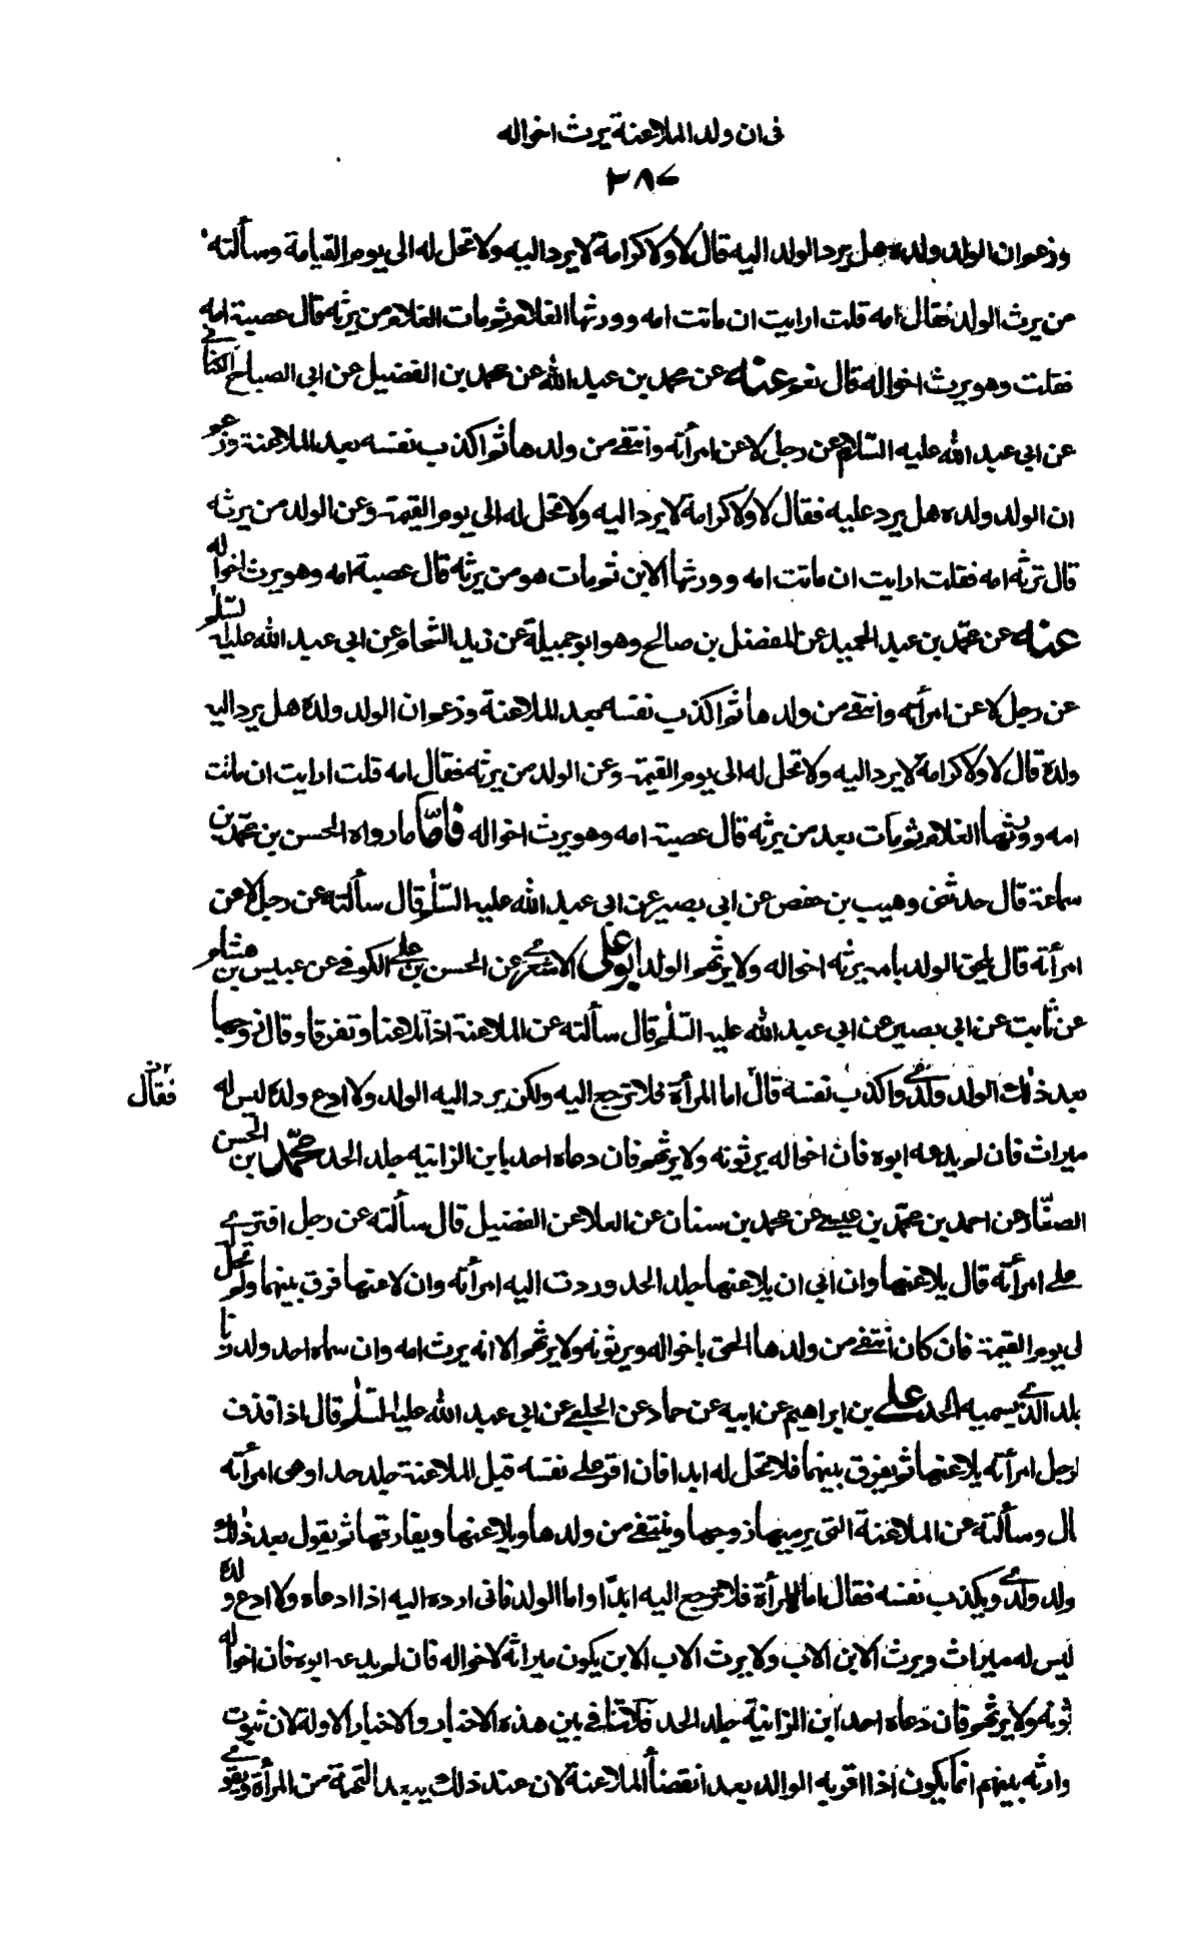 فى ان ولد الملاعنة يرث اخواله
٣٨٧
وزعم ان الولد ولده هل يرد الولد اليه قال لا ولا كرامة لا يرد اليه ولا تحل له الى يوم القيامة وسألته
من يرث الولد فقال امه قلت ارايت ان ماتت امه وورثها الغلام ثم مات الغلام من يرثه قال عصبة امه
فقلت وهو يرث اخواله قال نعم عنه عن محمد بن عبد الله عن محمد بن الفضيل عن ابى الصباح الكنانى
عن ابى عبد الله عليه السّلام عن رجل لاعن امرأته وانتفى من ولدها ثم اكذب نفسه بعد الملاعنة وزعم
ان الولد ولده هل يرد عليه فقال لا ولا كرامة لا يرد اليه ولا تحل له الى يوم القيمة وعن الولد من يرثه
قال ترثه امه فقلت ارايت ان ماتت امه وورثها الابن ثم مات هو من يرثه قال عصبة امه وهو يرث اخواله
عنه عن محمّد بن عبد الحميد عن المفضل بن صالح وهو ابو جميلة عن زيد الشحام عن ابى عبد الله عليه السّلم
عن رجل لاعن امرأته وانتفى من ولدها ثم اكذب نفسه بعد الملاعنة وزعم ان الولد ولده هل يرد اليه
ولده قال لا ولا كرامة لا يرد اليه ولا تحل له الى يوم القيمة وعن الولد من يرثه فقال امه قلت ارايت ان ماتت
امه وورثها الغلام ثم مات بعد من يرثه قال عصبة امه وهو يرث اخواله فامّا ما رواه الحسن بن محمّد بن
سماعة قال حدثنى وهيب بن حفص عن ابى بصير عن ابى عبد الله عليه السّلم قال سألته عن رجل لاعن
امرأته قال يلحق الولد بامه يرثه اخواله ولا يرثهم الولد ابو على الاشعرى عن الحسن بن على الكوفى عن عبيس بن هشام
عن ثابت عن ابى بصير عن ابى عبد الله عليه السّلم قال سألته عن الملاعنة اذا تلاعنا وتفرقا وقال زوجها
بعد ذلك الولد ولدى واكذب نفسه قال اما المرأة فلا ترجع اليه ولكن يرد اليه الولد ولا ادع ولده ليس له
ميراث فان لم يدعه ابوه فان اخواله يرثونه ولا يرثهم فان دعاه احد يا بن الزانيه جلد الحد محمّد ابن الحسن
الصفّار عن احمد بن محمّد بن عيسى عن محمد بن سنان عن العلا عن الفضيل قال سألته عن رجل افترى
على امرأته قال يلاعنها وان ابى ان يلاعنها جلد الحد وردت اليه امرأته وان لاعنها فرق بينهما ولم تحل
لى يوم القيمة فان كان انتفى من ولدها الحق باخواله ويرثونه ولا يرثهم الا انه يرث امه وان سماه احد ولد زنا
بلد الذى يسميه الحد على بن ابراهيم عن ابيه عن حماد عن الحلبى عن ابى عبد الله عليه السّلم قال اذا قذف
لرجل امرأته يلاعنها ثم يفرق بينهما فلا تحل له ابدا فان اقر على نفسه قبل الملاعنة جلد حدا وهى امرأته
ال وسألته عن الملاعنة التى يرميها زوجها وينتفى من ولدها ويلاعنها ويفارقها ثم يقول بعد ذلك
ولد ولدى ويكذب نفسه فقال اما المرأة فلا ترجع اليه ابدًا واما الولد فانى ارده اليه اذا ادعاه ولا ادع ولده
ليس له ميراث ويرث الابن الاب ولا يرث الاب الابن يكون ميراثه لاخواله فان لم يدعه ابوه فان اخواله
ثونه ولا يرثهم فان دعاه احد ابن الزانية جلد الحد فلا تنافى بين هذه الاخبار والاخبار الاولة لان ثبوت
وارثه بينهم انّما يكون اذا اقر به الوالد بعد انقضاء الملاعنة لان عند ذلك يبعد التهمة من المرأة ويقوى
فقال